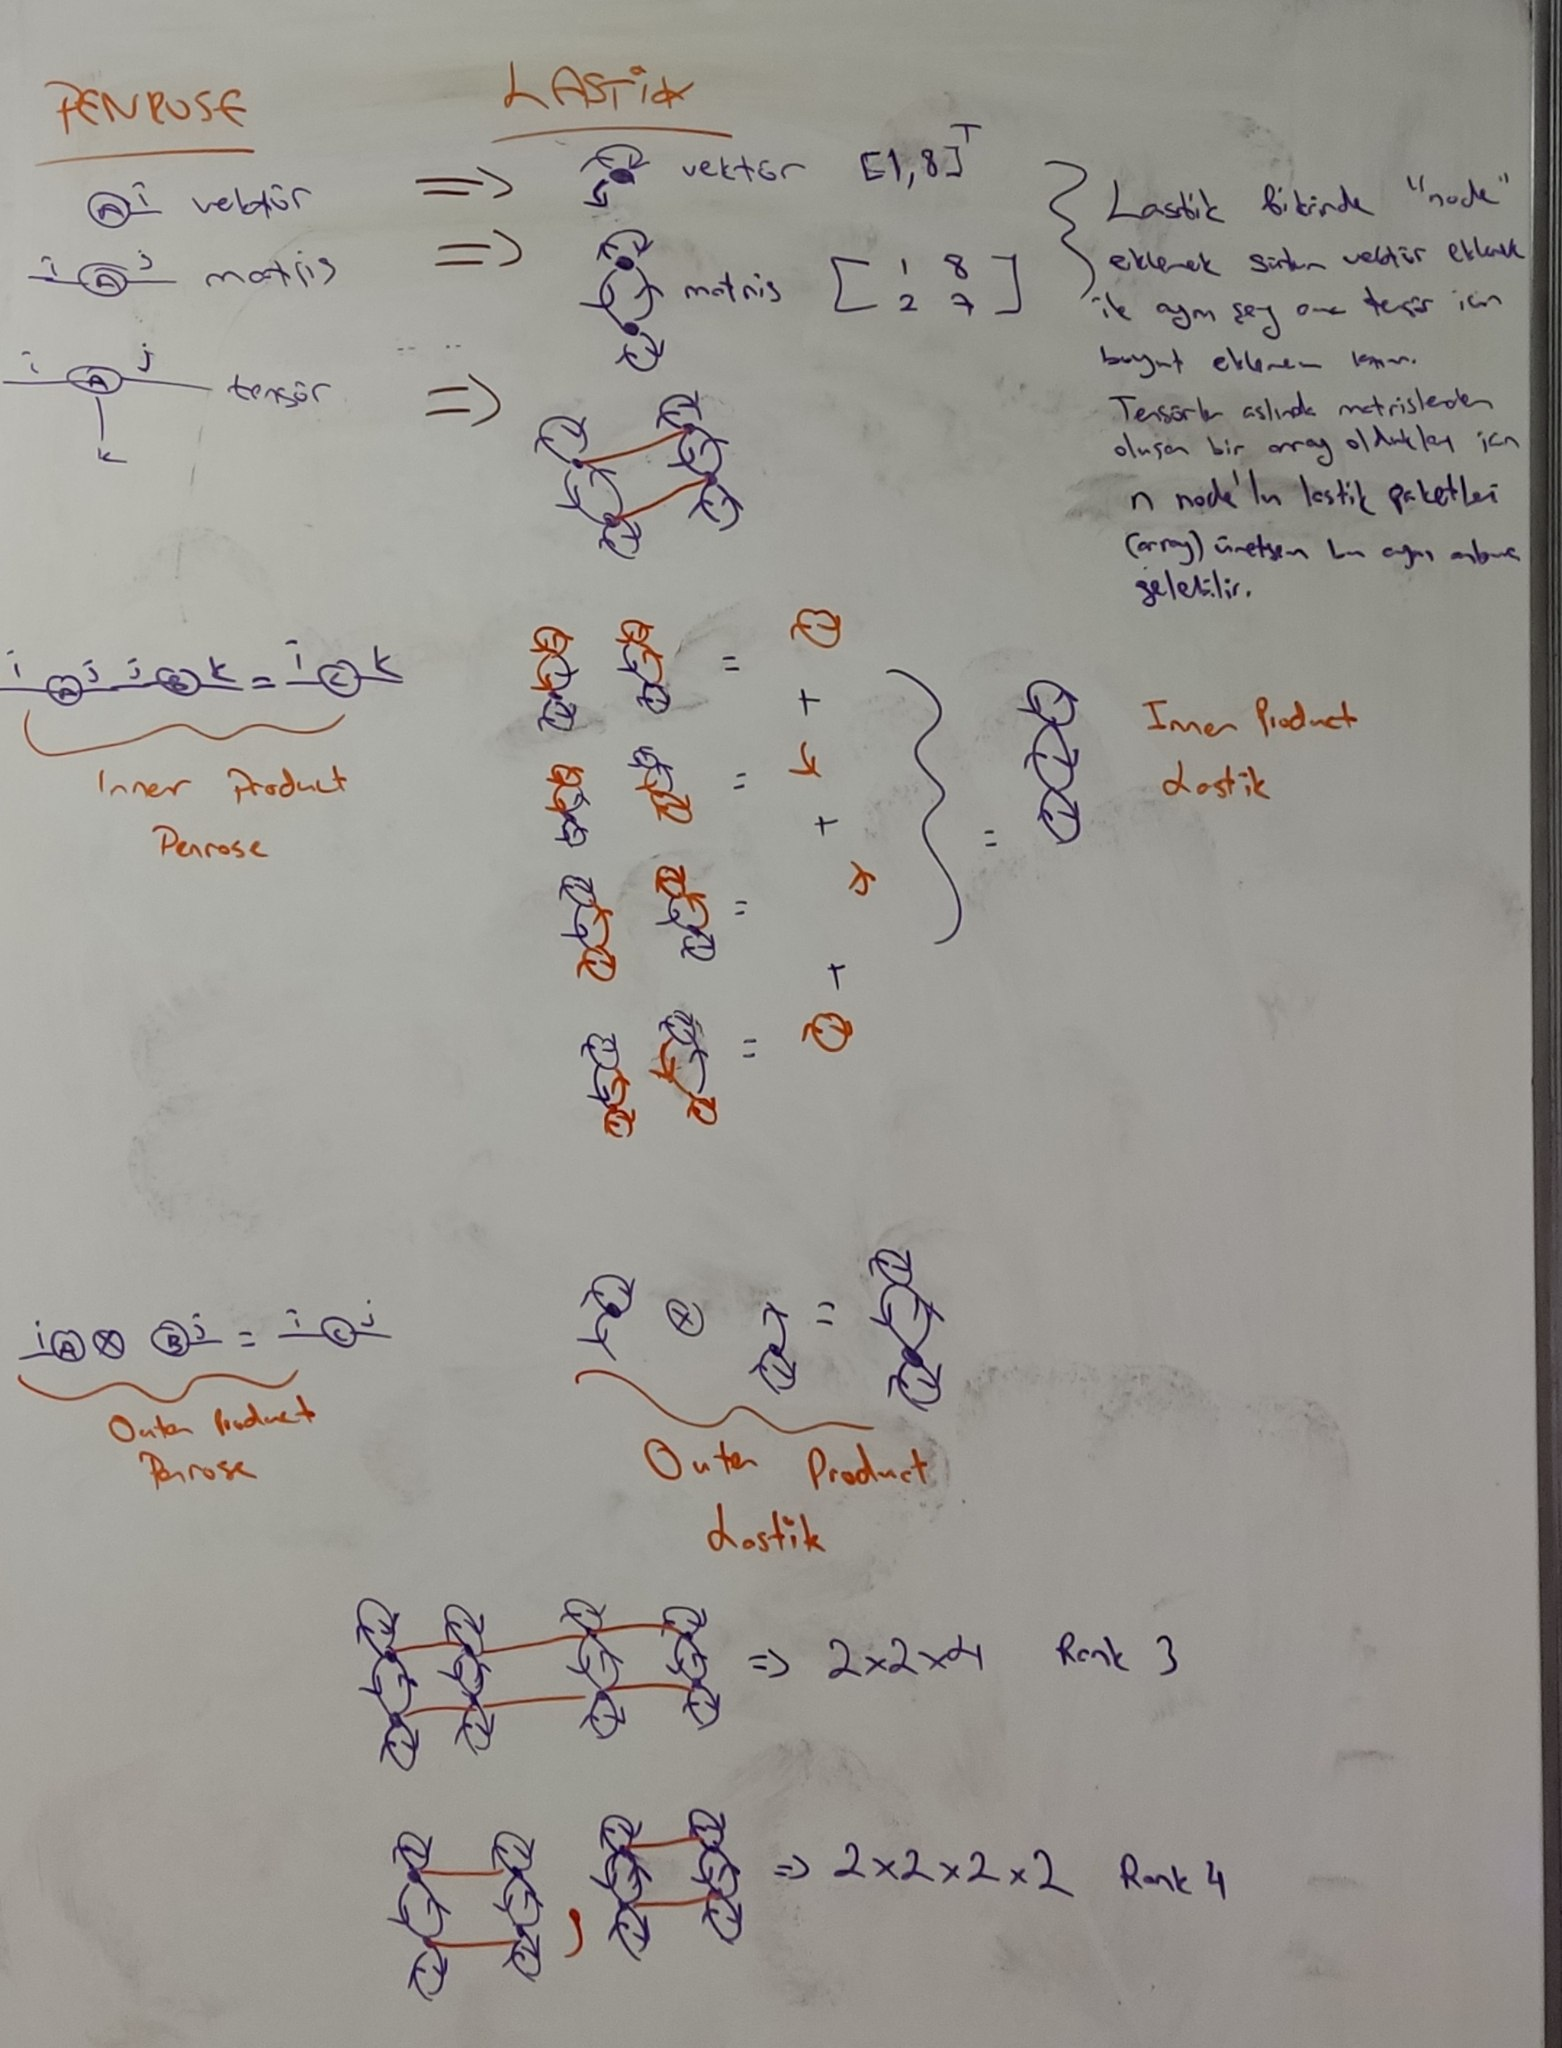 PENROSE
LASTİK
A i vektör => vektör [1,8]^T
i A j matris => matris [ 1 8
2 7 ]
i A j tensör =>
k
Lastik fikrinde "node"
eklemek sütun vektör eklemek
ile aynı şey ama tensör için
boyut eklemem lazım.
Tensörler aslında matrislerden
oluşan bir array oldukları için
n node'lu lastik paketleri
(array) üretsem bu aynı anlama
gelebilir.
i A j j B k = i C k
Inner Product
Penrose
=
+
=
+
=
+
=
=
Inner Product
Lastik
i A ⊗ B j = i C j
Outer Product
Penrose
⊗ =
Outer Product
Lastik
=> 2x2x4 Rank 3
, => 2x2x2x2 Rank 4